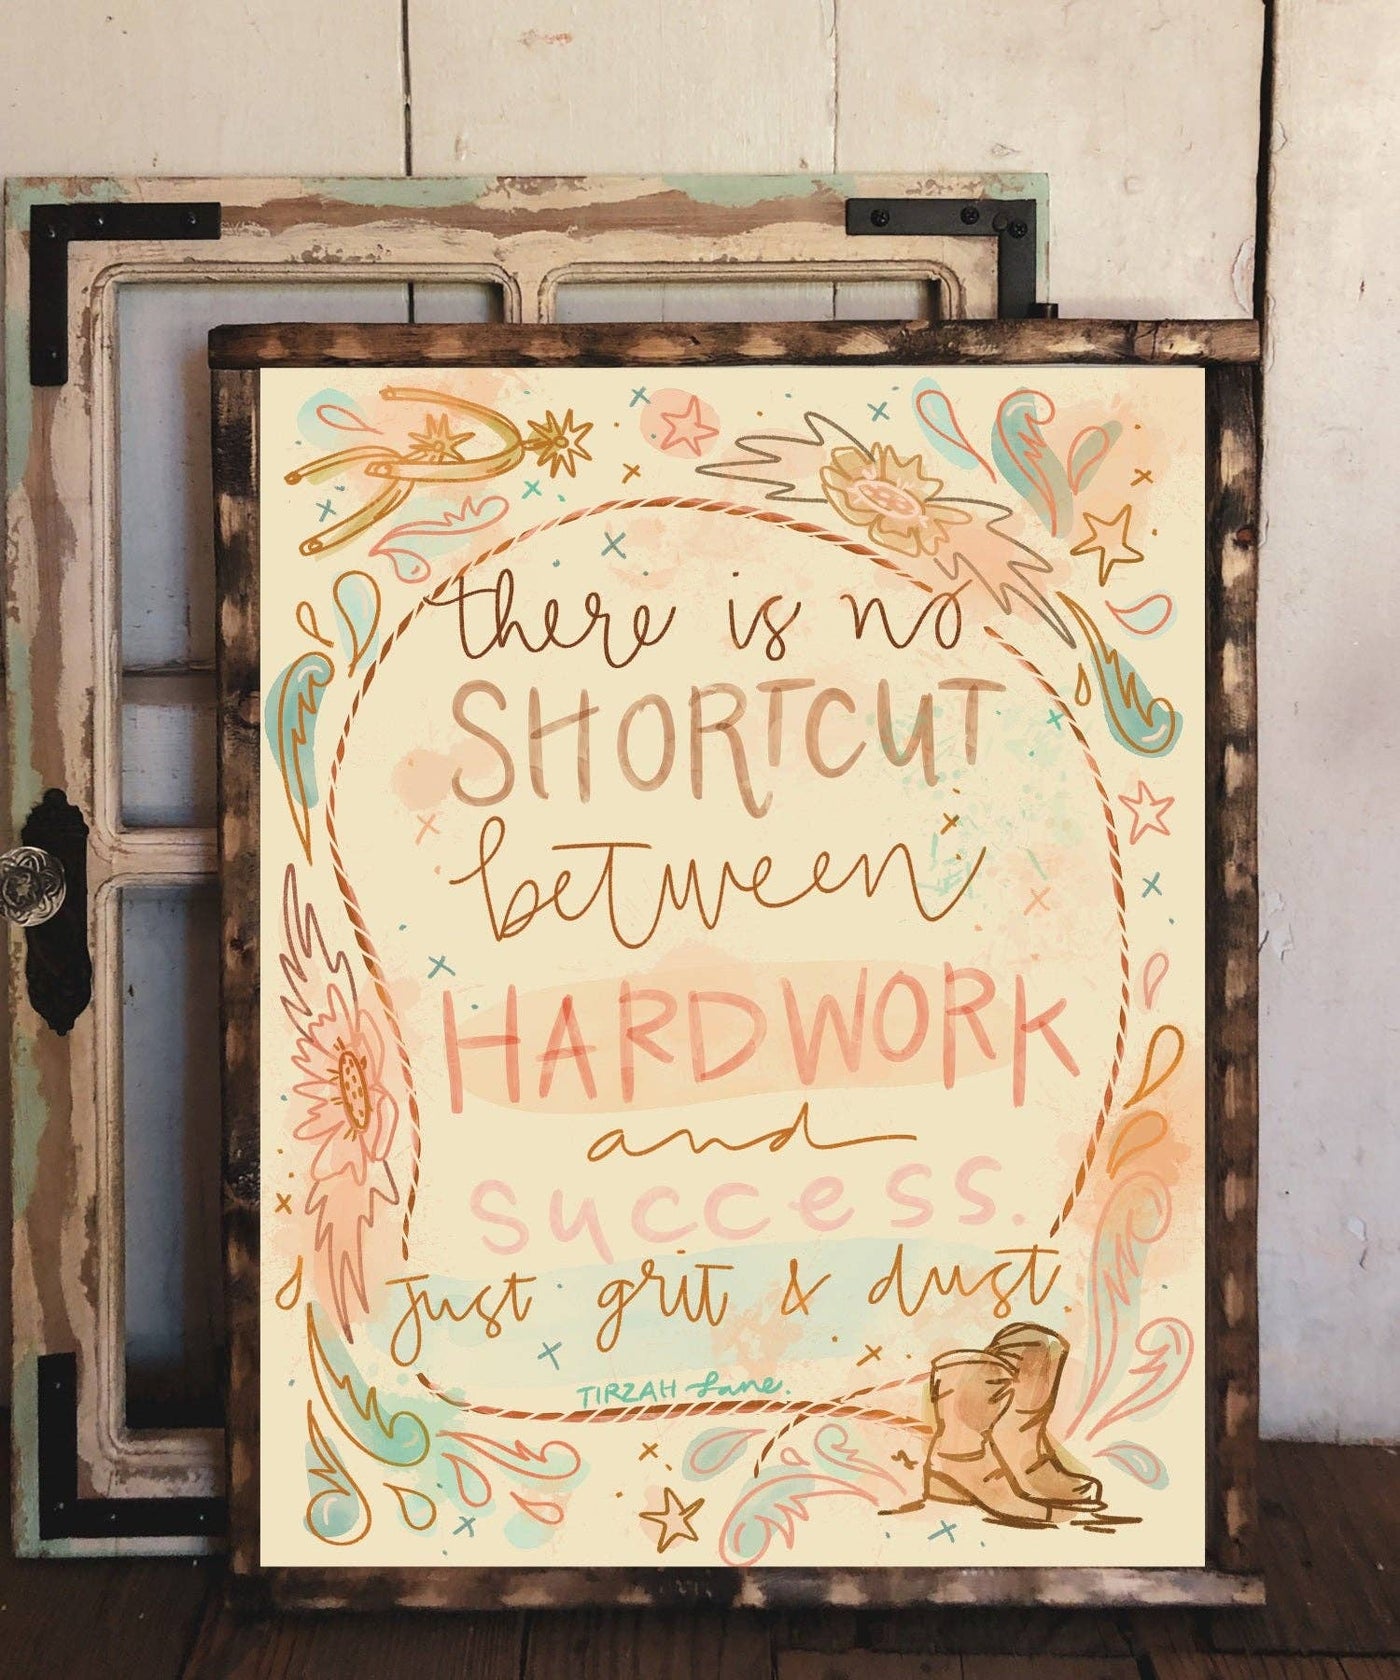 there is no
SHORTCUT
between
HARDWORK
and
success.
just grit & dust.
TIRZAH Lane.